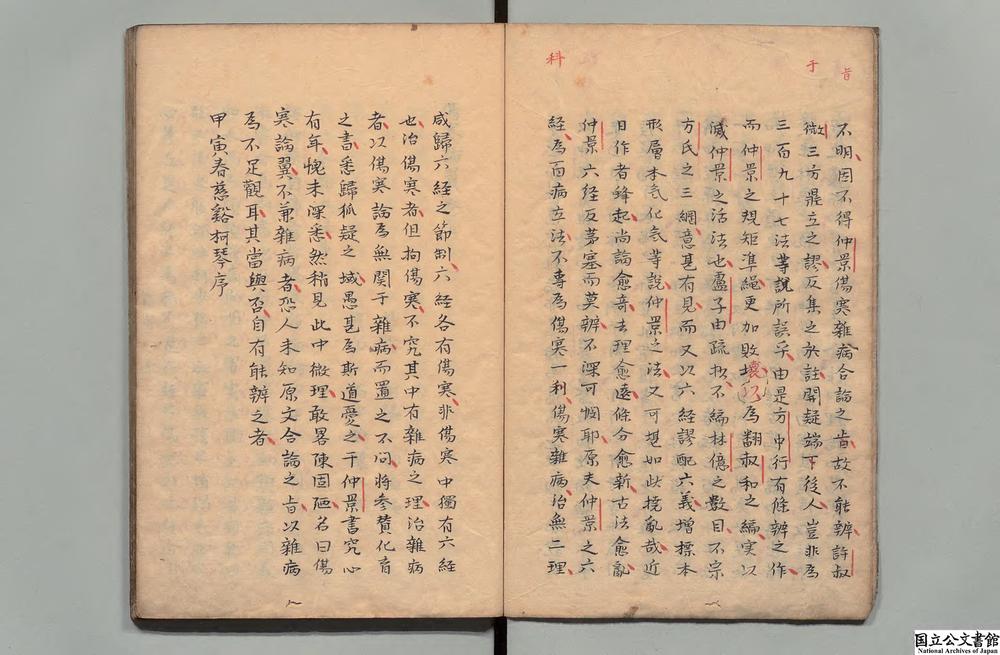 旨
于
科
不明因不得仲景傷寒雜病合論之旨故不能辨許叔
微三方鼎立之謬反集之於註開疑端下後人豈非為
三百九十七法等說所誤乎由是方中行有條辨之作
而仲景之規矩準繩更加敗壞為翻叔和之編実以
滅仲景之活法也盧子由疏抄不編林億之數目不宗
方氏之三綱意甚有見而又以六經謬配六義增標本
形層本气化气等說仲景之法又可堪如此撓亂哉近
日作者鋒起尚論愈奇去理愈遠條分愈新古法愈亂
仲景六经反茅塞而莫辨不深可憫耶原夫仲景之六
經為百病立法不專為傷寒一利傷寒雜病治無二理
咸歸六經之節制六經各有傷寒非傷寒中獨有六經
也治傷寒者但拘傷寒不究其中有雜病之理治雜病
者以傷寒論為無関于雜病而置之不问將參賛化育
之書悉歸狐疑之域愚甚為斯道憂之于仲景書究心
有年愧未深悉然稍見此中微理敢畧陳固陋名曰傷
寒論翼不兼雜病者恐人未知原文合論之旨以雜病
為不足觀耳其當與否自有能辨之者
甲寅春慈谿柯琴序
国立公文書館
National Archives of Japan